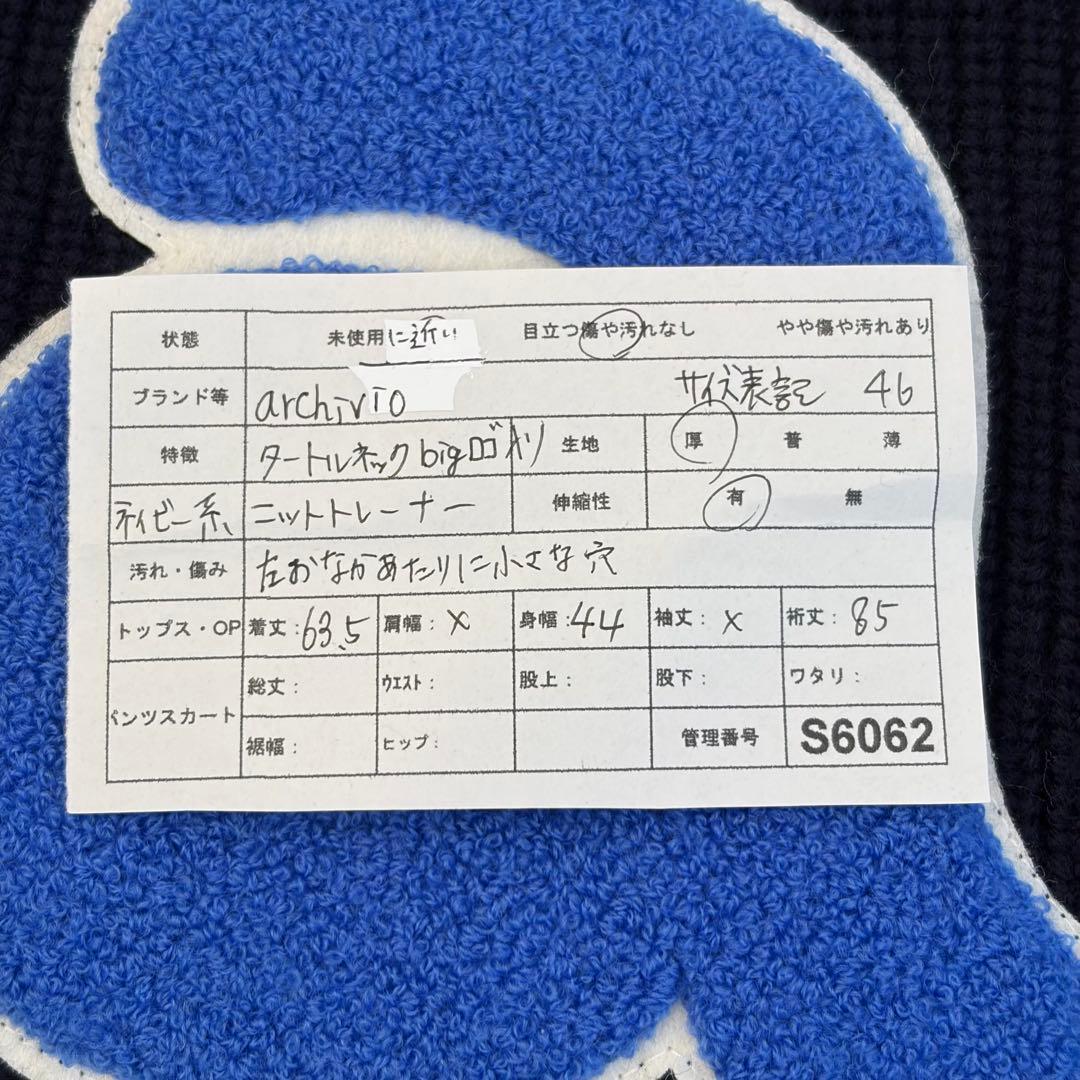 状態 未使用に近い 目立つ傷や汚れなし やや傷や汚れあり
ブランド等 archivio サイズ表記 46
特徴 タートルネックbigロゴ入り 生地 厚 普 薄
ネイビー系 ニットトレーナー 伸縮性 有 無
汚れ・傷み 左おなかあたりに小さな穴
トップス・OP 着丈:63.5 肩幅:× 身幅:44 袖丈:× 裄丈:85
パンツスカート 総丈: ウエスト: 股上: 股下: ワタリ:
裾幅: ヒップ: 管理番号 S6062